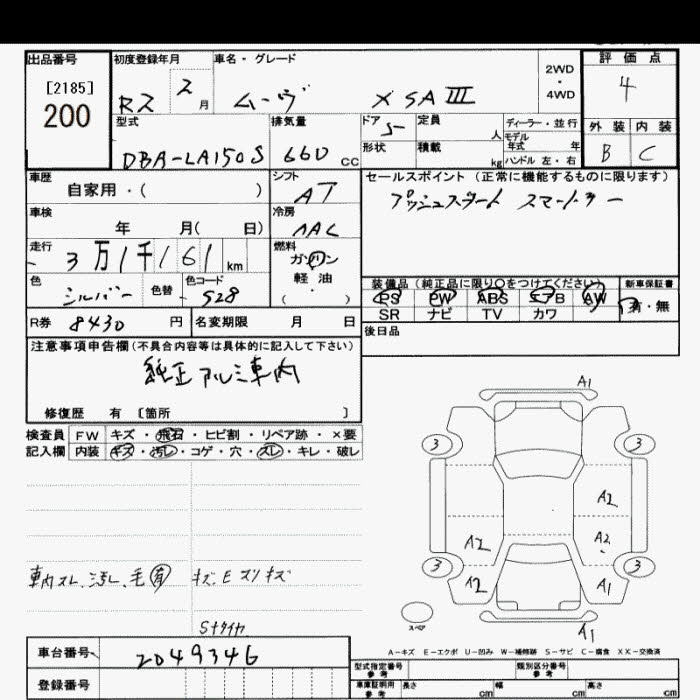 出品番号
[2185]
200
初度登録年月
R2 2 月
車名・グレード
ムーヴ X SAⅢ
2WD
・
4WD
評価点
4
型式
DBA-LA150S
排気量
660 CC
ドア 5
定員 人
ディーラー・並行
モデル年式 年
形状
積載 kg
ハンドル 左・右
外装 内装
B C
車歴
自家用・( )
シフト
AT
セールスポイント (正常に機能するものに限ります)
プッシュスタート スマートキー
車検
年 月( 日)
冷房
AAC
走行
3万1千161 km
燃料
ガソリン
軽油
( )
色
シルバー
色替
色コード
S28
装備品 (純正品に限り○をつけてください)
PS PW ABS エアB AW
SR ナビ TV カワ
新車保証書
有・無
R券 8430 円
名変期限 月 日
後日品
注意事項申告欄 (不具合内容等は具体的に記入して下さい)
純正アルミ車内
修復歴 有 〔箇所 〕
検査員
記入欄
FW キズ・飛石・ヒビ割・リペア跡・×要
内装 キズ・汚レ・コゲ・穴・スレ・キレ・破レ
A1
3 3
A2
A2 A2
3 3
A2 A1
A1
スペア
車内スレ、汚レ、毛有
キズ、E スリキズ
Sタイヤ
A-キズ E-エクボ U-凹み W-補修跡 S-サビ C-腐食 XX-交換済
車台番号
2049346
登録番号
型式指定番号
参考
類別区分番号
参考
車庫証明用
参考
長さ cm
幅 cm
高さ cm